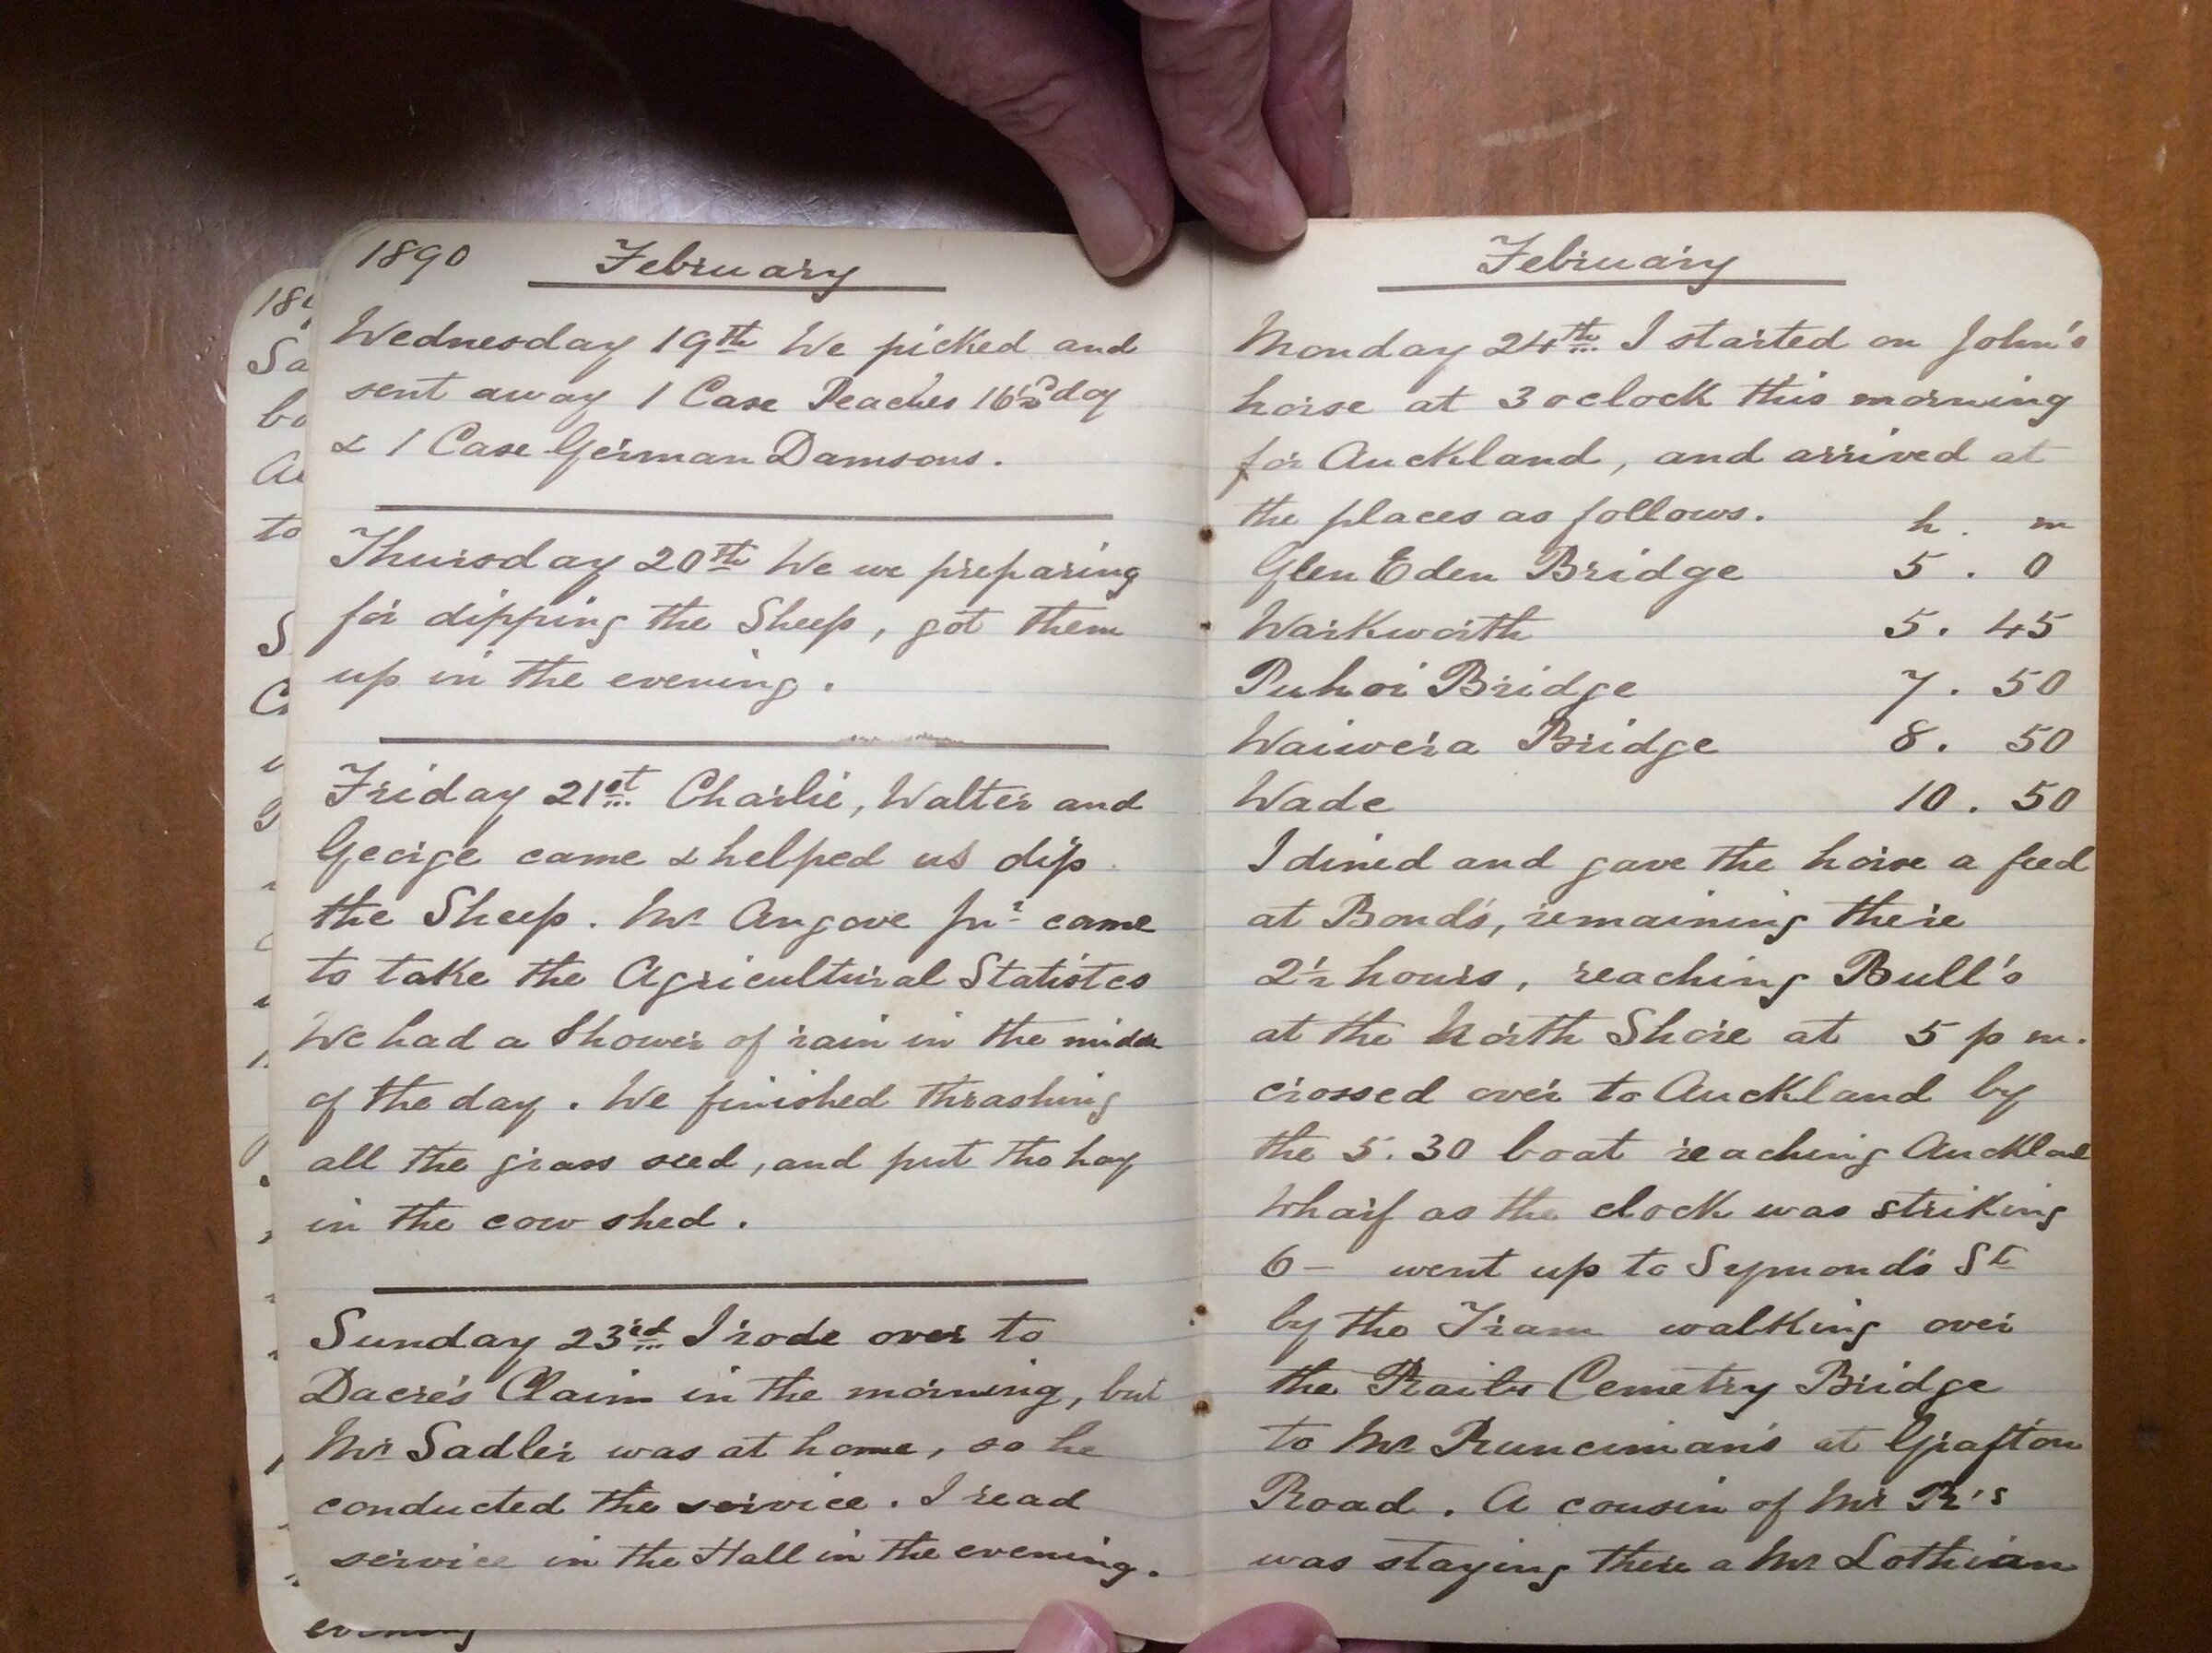 1890 February
Wednesday 19th We picked and
sent away 1 Case Peaches 16 doz
& 1 Case German Damsons.
Thursday 20th We we preparing
for dipping the Sheep, got them
up in the evening.
Friday 21st Charlie, Walter and
George came & helped us dip
the Sheep. Mr Angove Jnr came
to take the Agricultural Statistcs
We had a Shower of rain in the middle
of the day. We finished thrashing
all the grass seed, and put the hay
in the cow shed.
Sunday 23rd I rode over to
Dacre's Claim in the morning, but
Mr Sadler was at home, so he
conducted the service. I read
service in the Hall in the evening.
February
Monday 24th I started on John's
horse at 3 oclock this morning
for Auckland, and arrived at
the places as follows. h. m
Glen Eden Bridge 5. 0
Warkworth 5. 45
Puhoi Bridge 7. 50
Waiwera Bridge 8. 50
Wade 10. 50
I dined and gave the horse a feed
at Bond's, remaining there
2½ hours, reaching Bull's
at the North Shore at 5 p m.
crossed over to Auckland by
the 5.30 boat reaching Auckland
Wharf as the clock was striking
6 - went up to Symond's St
by the Tram walking over
the Cemetry Bridge
to Mr Runciman's at Grafton
Road. A cousin of Mr R's
was staying there a Mr Lothian
184
Sa
bo
to
S
evening